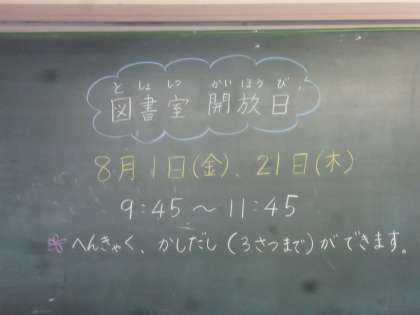 としょしつ かいほうび
図書室 開放日
8月1日(金)、21日(木)
9:45～11:45
へんきゃく、かしだし(3さつまで)ができます。